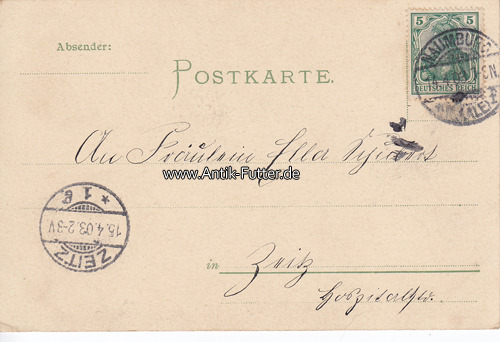 Absender:
POSTKARTE.
5 5
DEUTSCHES REICH
NAUMBURG
An Fräulein Ella
www.Antik-Futter.de
* 1 e
15.4.03.2-3V.
ZEITZ
in Zeitz